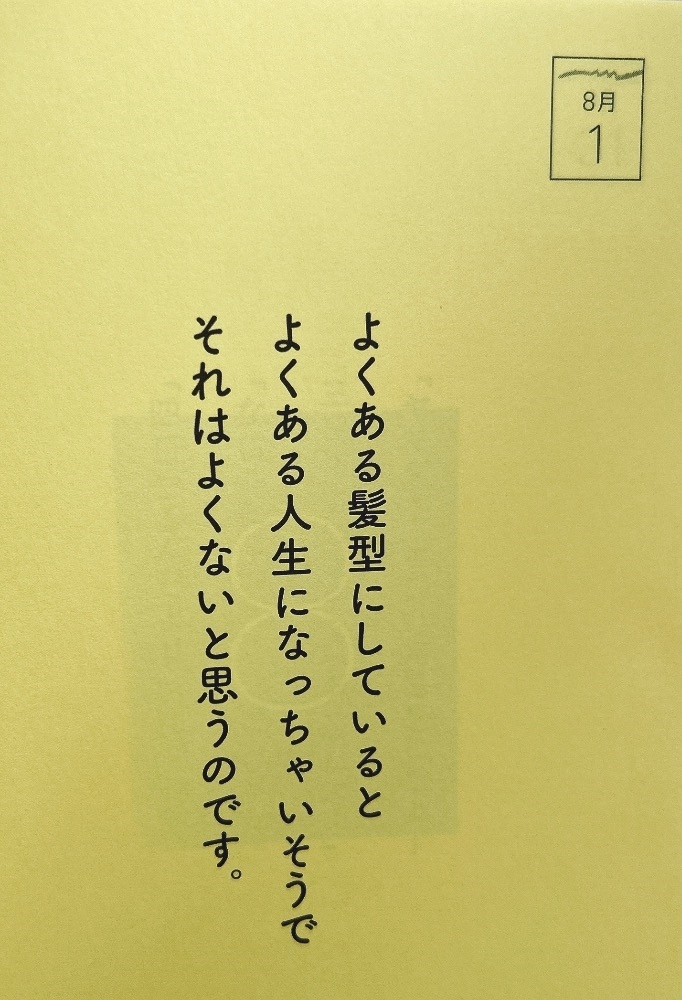 8月
1
よくある髪型にしていると
よくある人生になっちゃいそうで
それはよくないと思うのです。